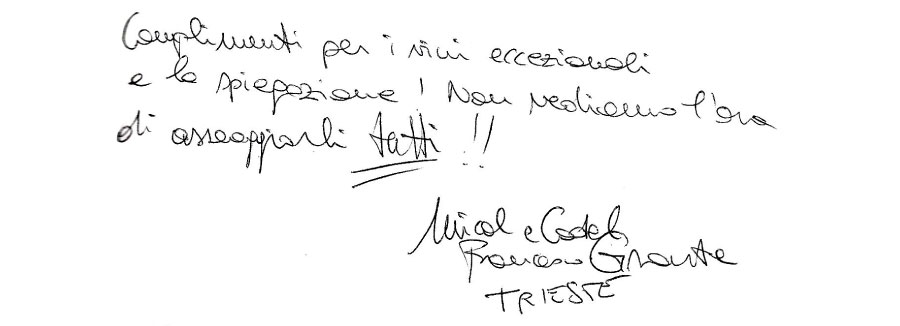 Complimenti per i vini eccezionali
e la spiegazione! Non vediamo l'ora
di assaggiarli tutti!!
Micol e
Francesco
TRIESTE